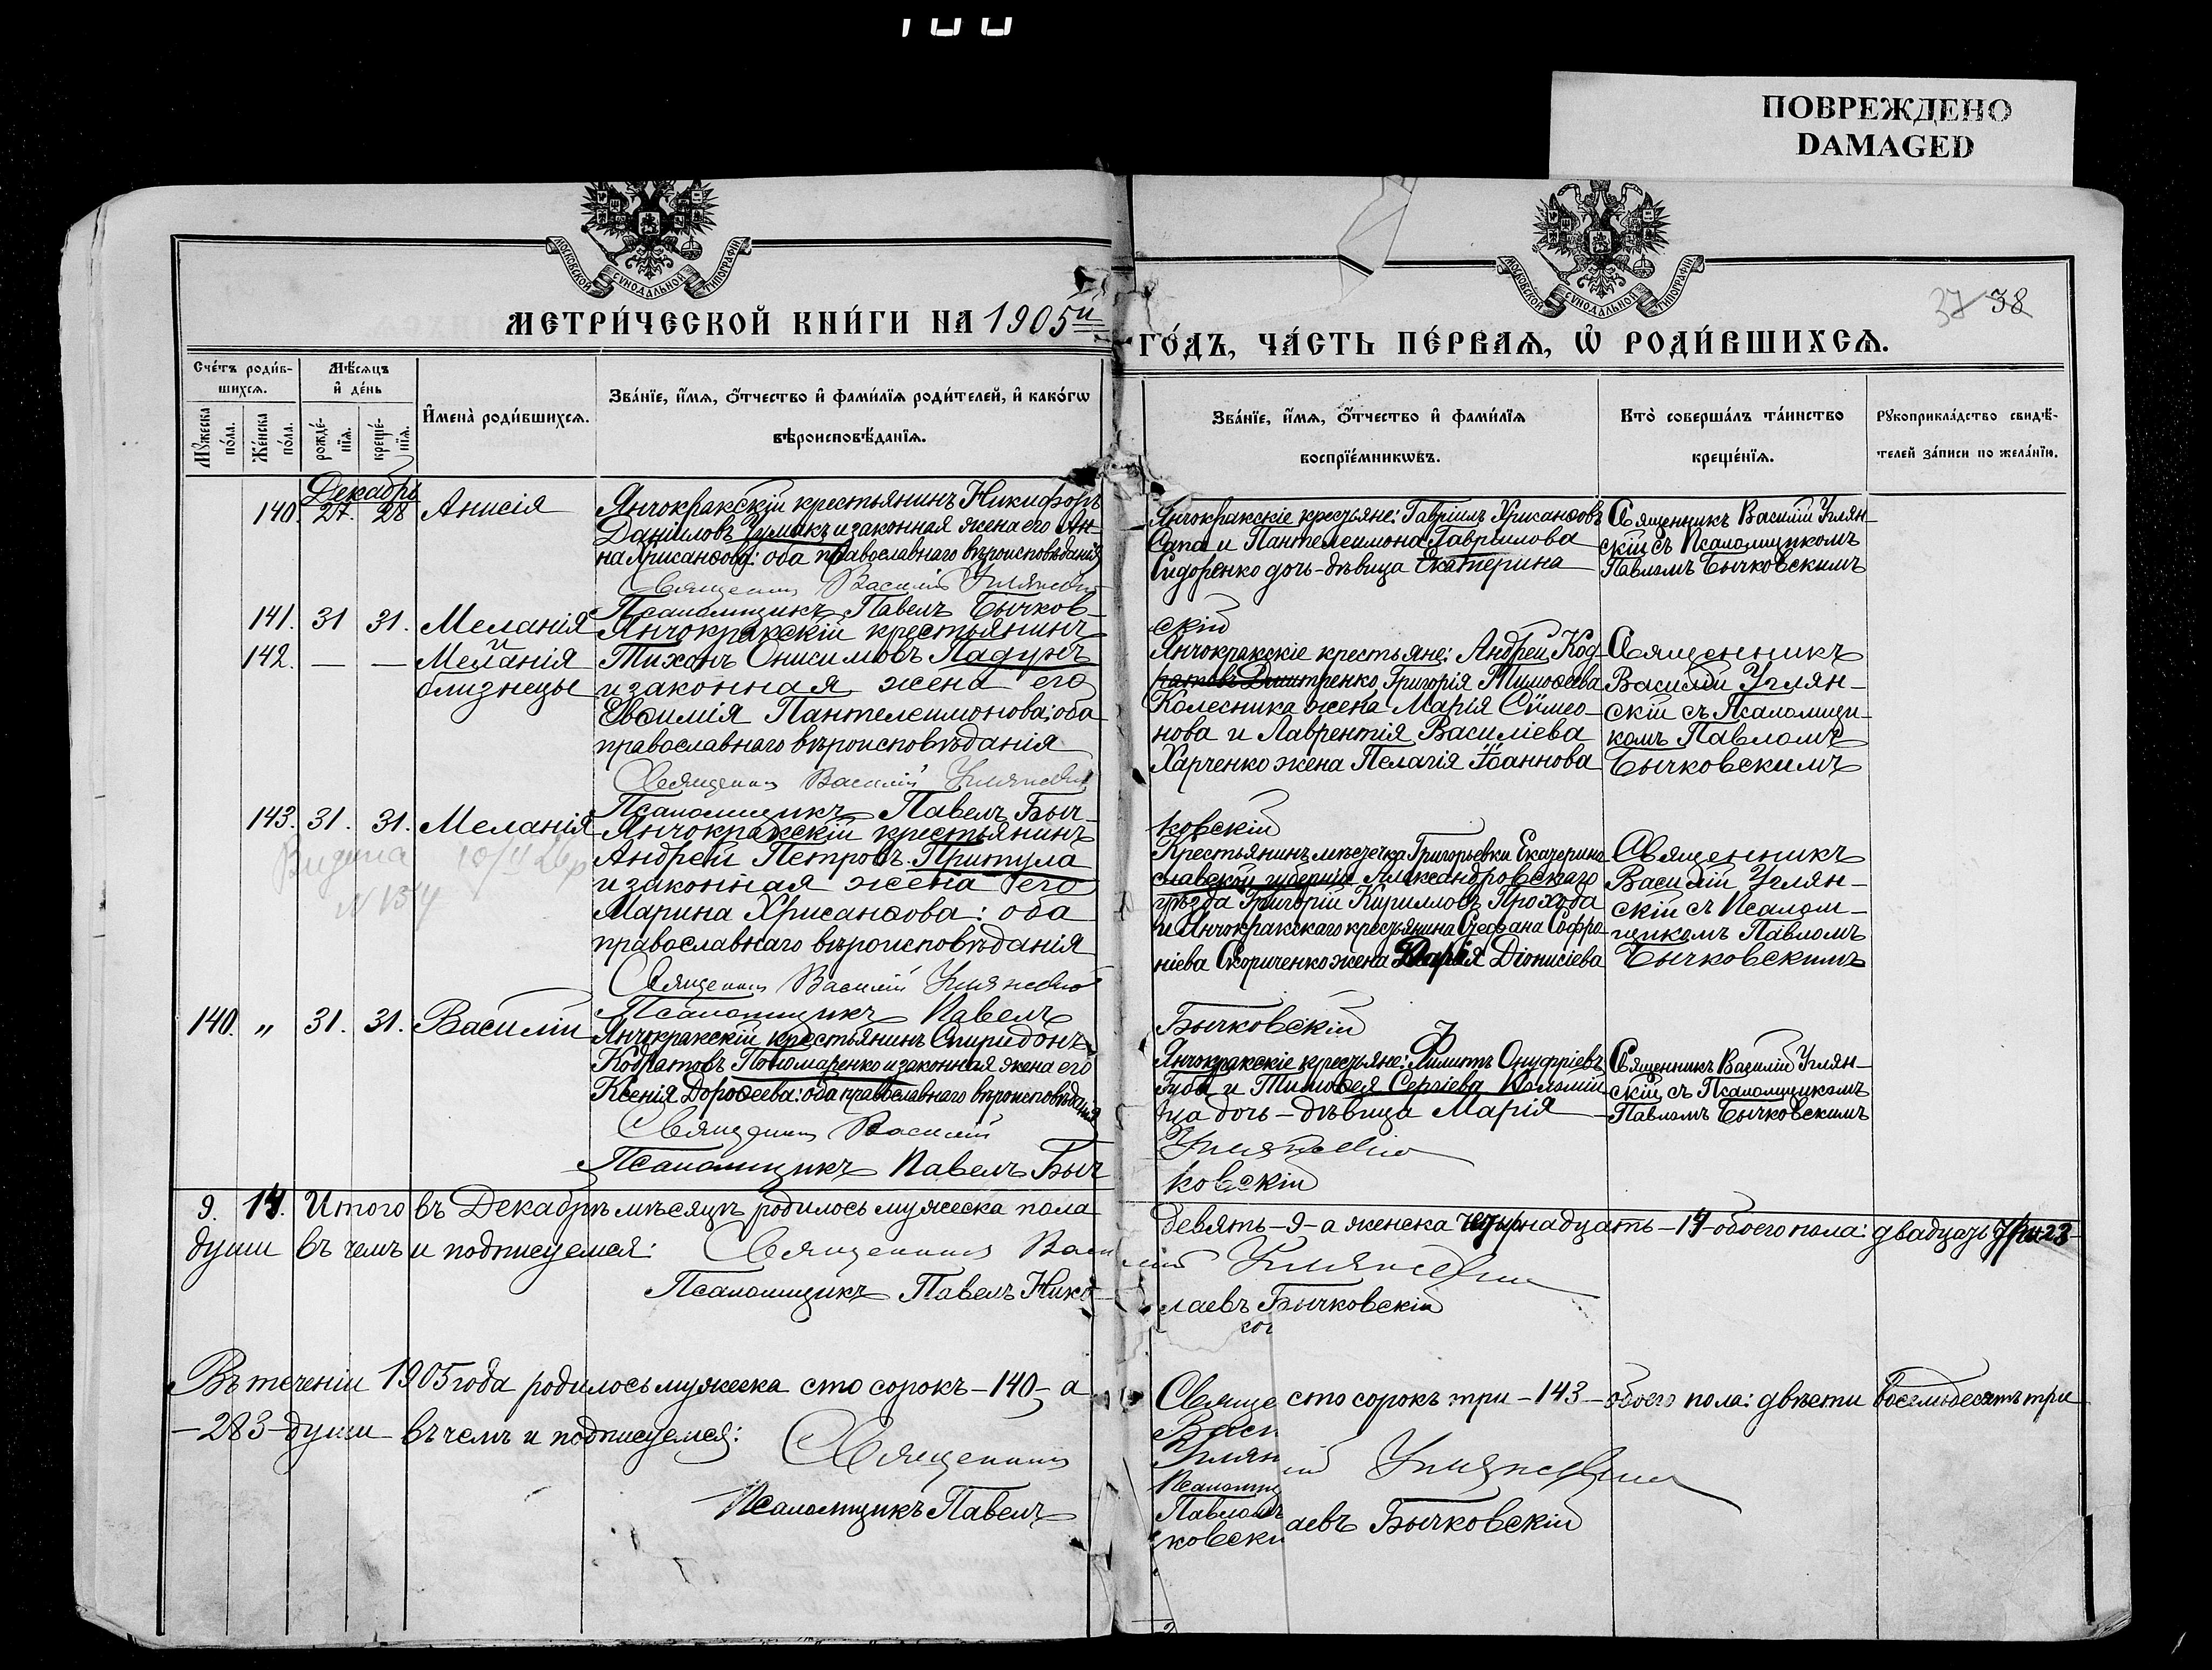 100
ПОВРЕЖДЕНО
DAMAGED
МОСКОВСКОЙ СѴНОДАЛЬНОЙ ТИПОГРАФІИ
МОСКОВСКОЙ СѴНОДАЛЬНОЙ ТИПОГРАФІИ
37 38
МЕТРИ́ЧЕСКОЙ КНИ́ГИ НА 1905й
ГО́ДЪ, ЧА́СТЬ ПЕ́РВАѦ, Ѡ҆ РОДИ́ВШИХСѦ.
Сче́тъ роди́в-
шихсѧ.
Мꙋ́жеска по́ла.
Же́нска по́ла.
Мѣ́сѧцъ
и҆ де́нь
рожде́-
нїѧ.
креще́-
нїѧ.
И҆мена̀ роди́вшихсѧ.
Зва́нїе, и҆́мѧ, ѻ҆́тчество и҆ фами́лїѧ роди́телей, и҆ како́гѡ
вѣроисповѣ́данїѧ.
Зва́нїе, и҆́мѧ, ѻ҆́тчество и҆ фами́лїѧ
воспрїе́мникѡвъ.
Кто̀ соверша́лъ та́инство
креще́нїѧ.
Рꙋкоприкла́дство свидѣ́-
телей за́писи по жела́нїю.
Декабрь
140. 27. 28 Анисія
Янчокракскій крестьянинъ Никифоръ
Даніиловъ Чумакъ и законная жена его Ан-
на Хрисанѳова: оба православнаго вѣроисповѣданія
Священникъ Василій Углянскій
Псаломщикъ Павелъ Бычков-
скій
Янчокракскіе крестьяне: Гавріилъ Хрисанѳовъ
Сапа и Пантелеимона Гавріилова
Сидоренко дочь-дѣвица Екатерина
Священникъ Василій Углян-
скій съ Псаломщикомъ
Павломъ Бычковскимъ
141. 31 31. Меланія
и
142. — — Меланія
близнецы
Янчокракскій крестьянинъ
Тихонъ Онисимовъ Падунъ
и законная жена его
Евѳимія Пантелеимонова: оба
православнаго вѣроисповѣданія
Священникъ Василій Углянскій
Псаломщикъ Павелъ Быч-
ковскій
Янчокракскіе крестьяне: Андрей Код-
ратовъ Дмитренко, Григорія Тимоѳеева
Колесника жена Марія Сѵмео-
нова и Лаврентія Василіева
Харченко жена Пелагія Іоаннова
Священникъ
Василій Углян-
скій съ Псаломщи-
комъ Павломъ
Бычковскимъ
143. 31. 31. Меланія
Янчокракскій крестьянинъ
Андрей Петровъ Притула
и законная жена его
Марина Хрисанѳова: оба
православнаго вѣроисповѣданія
Священникъ Василій Углянскій
Псаломщикъ Павелъ
Бычковскій
Крестьянинъ мѣстечка Григорьевки Екатерино-
славской губерніи Александровскаго
уѣзда Григорій Кирилловъ Прохода
и Янчокракскаго крестьянина Стефана Софро-
ніева Скориченко жена Дарія Діонисіева
Священникъ
Василій Углян-
скій съ Псалом-
щикомъ Павломъ
Бычковскимъ
140. „ 31. 31. Василій
Янчокракскій крестьянинъ Спиридонъ
Кодратовъ Пономаренко и законная жена его
Ксенія Дороѳеева: оба православнаго вѣроисповѣданія
Священникъ Василій
Углянскій
Псаломщикъ Павелъ Быч
ковскій
Янчокракскіе крестьяне: Филиппъ Онуфріевъ
Губа и Тимоѳея Сергіева Коломій
ца дочь-дѣвица Марія
Священникъ Василій Углян-
скій съ Псаломщикомъ
Павломъ Бычковскимъ
9. 14. Итого въ Декабрѣ мѣсяцѣ родилось мужеска пола девять-9-а женска четырнадцать-14-обоего пола: двадцать три-23-
души въ чемъ и подписуемся: Священникъ Василій Углянскій
Псаломщикъ Павелъ Нико-
лаевъ Бычковскій
Въ теченіи 1905 года родилось мужеска сто сорокъ-140-а
сто сорокъ три-143-обоего пола: двѣсти восемьдесятъ три
-283-души въ чемъ и подписуемся: Священникъ
ій Углянскій
Псаломщикъ Павелъ
аевъ Бычковскій
Свяще
Васи
Углян
Псаломщ
Павломъ
ковски